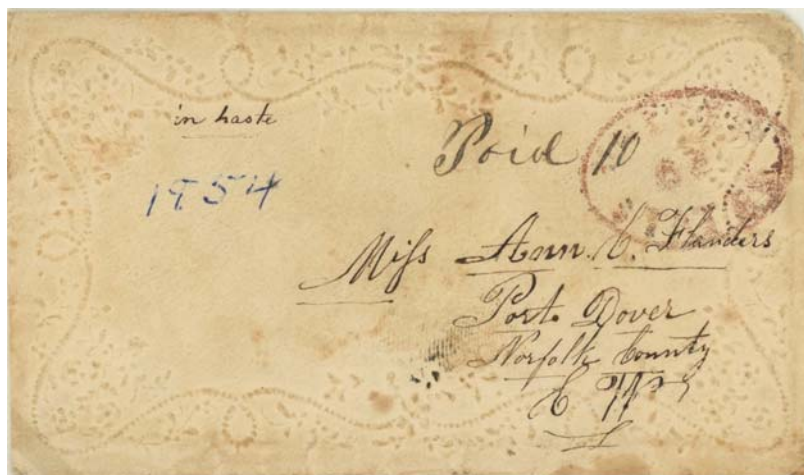 in haste
Paid 10
1854
Miss Ann. C. Flanders
Port Dover
Norfolk County
C W